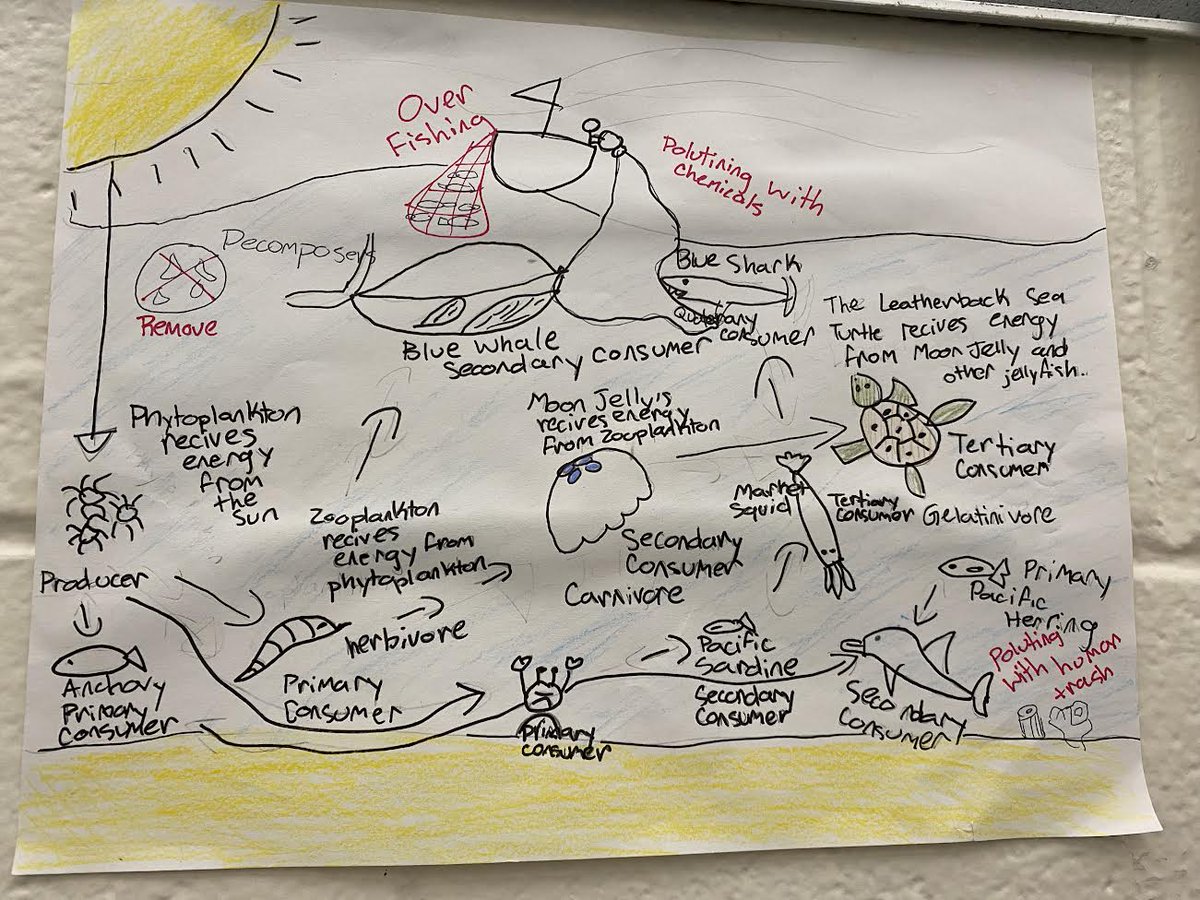 Over
Fishing
Polutining with
chemicals
Decomposers
Remove
Blue Shark
consumer
Blue Whale
Secondary consumer
The Leatherback Sea
Turtle recives energy
from Moon Jelly and
other jellyfish..
Phytoplankton
recives
energy
from
the
Sun
Moon Jelly's
recives energy
from Zooplankton
Tertiary
Consumer
Market
Squid
Tertiary
Consumer
Gelatinivore
Zooplankton
recives
energy from
phytoplankton
Secondary
Consumer
Carnivore
Producer
herbivore
Primary
Pacific
Herring
Poluting
with human
trash
Anchovy
Primary
Consumer
Primary
Consumer
Primary
consumer
Pacific
Sardine
Secondary
Consumer
Secondary
Consumer